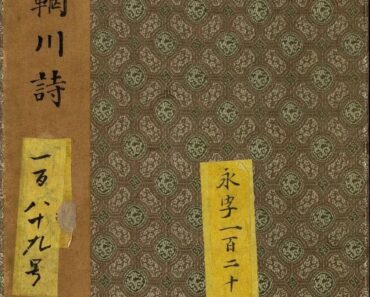 輞川詩
一百八十九号
永字一百二十